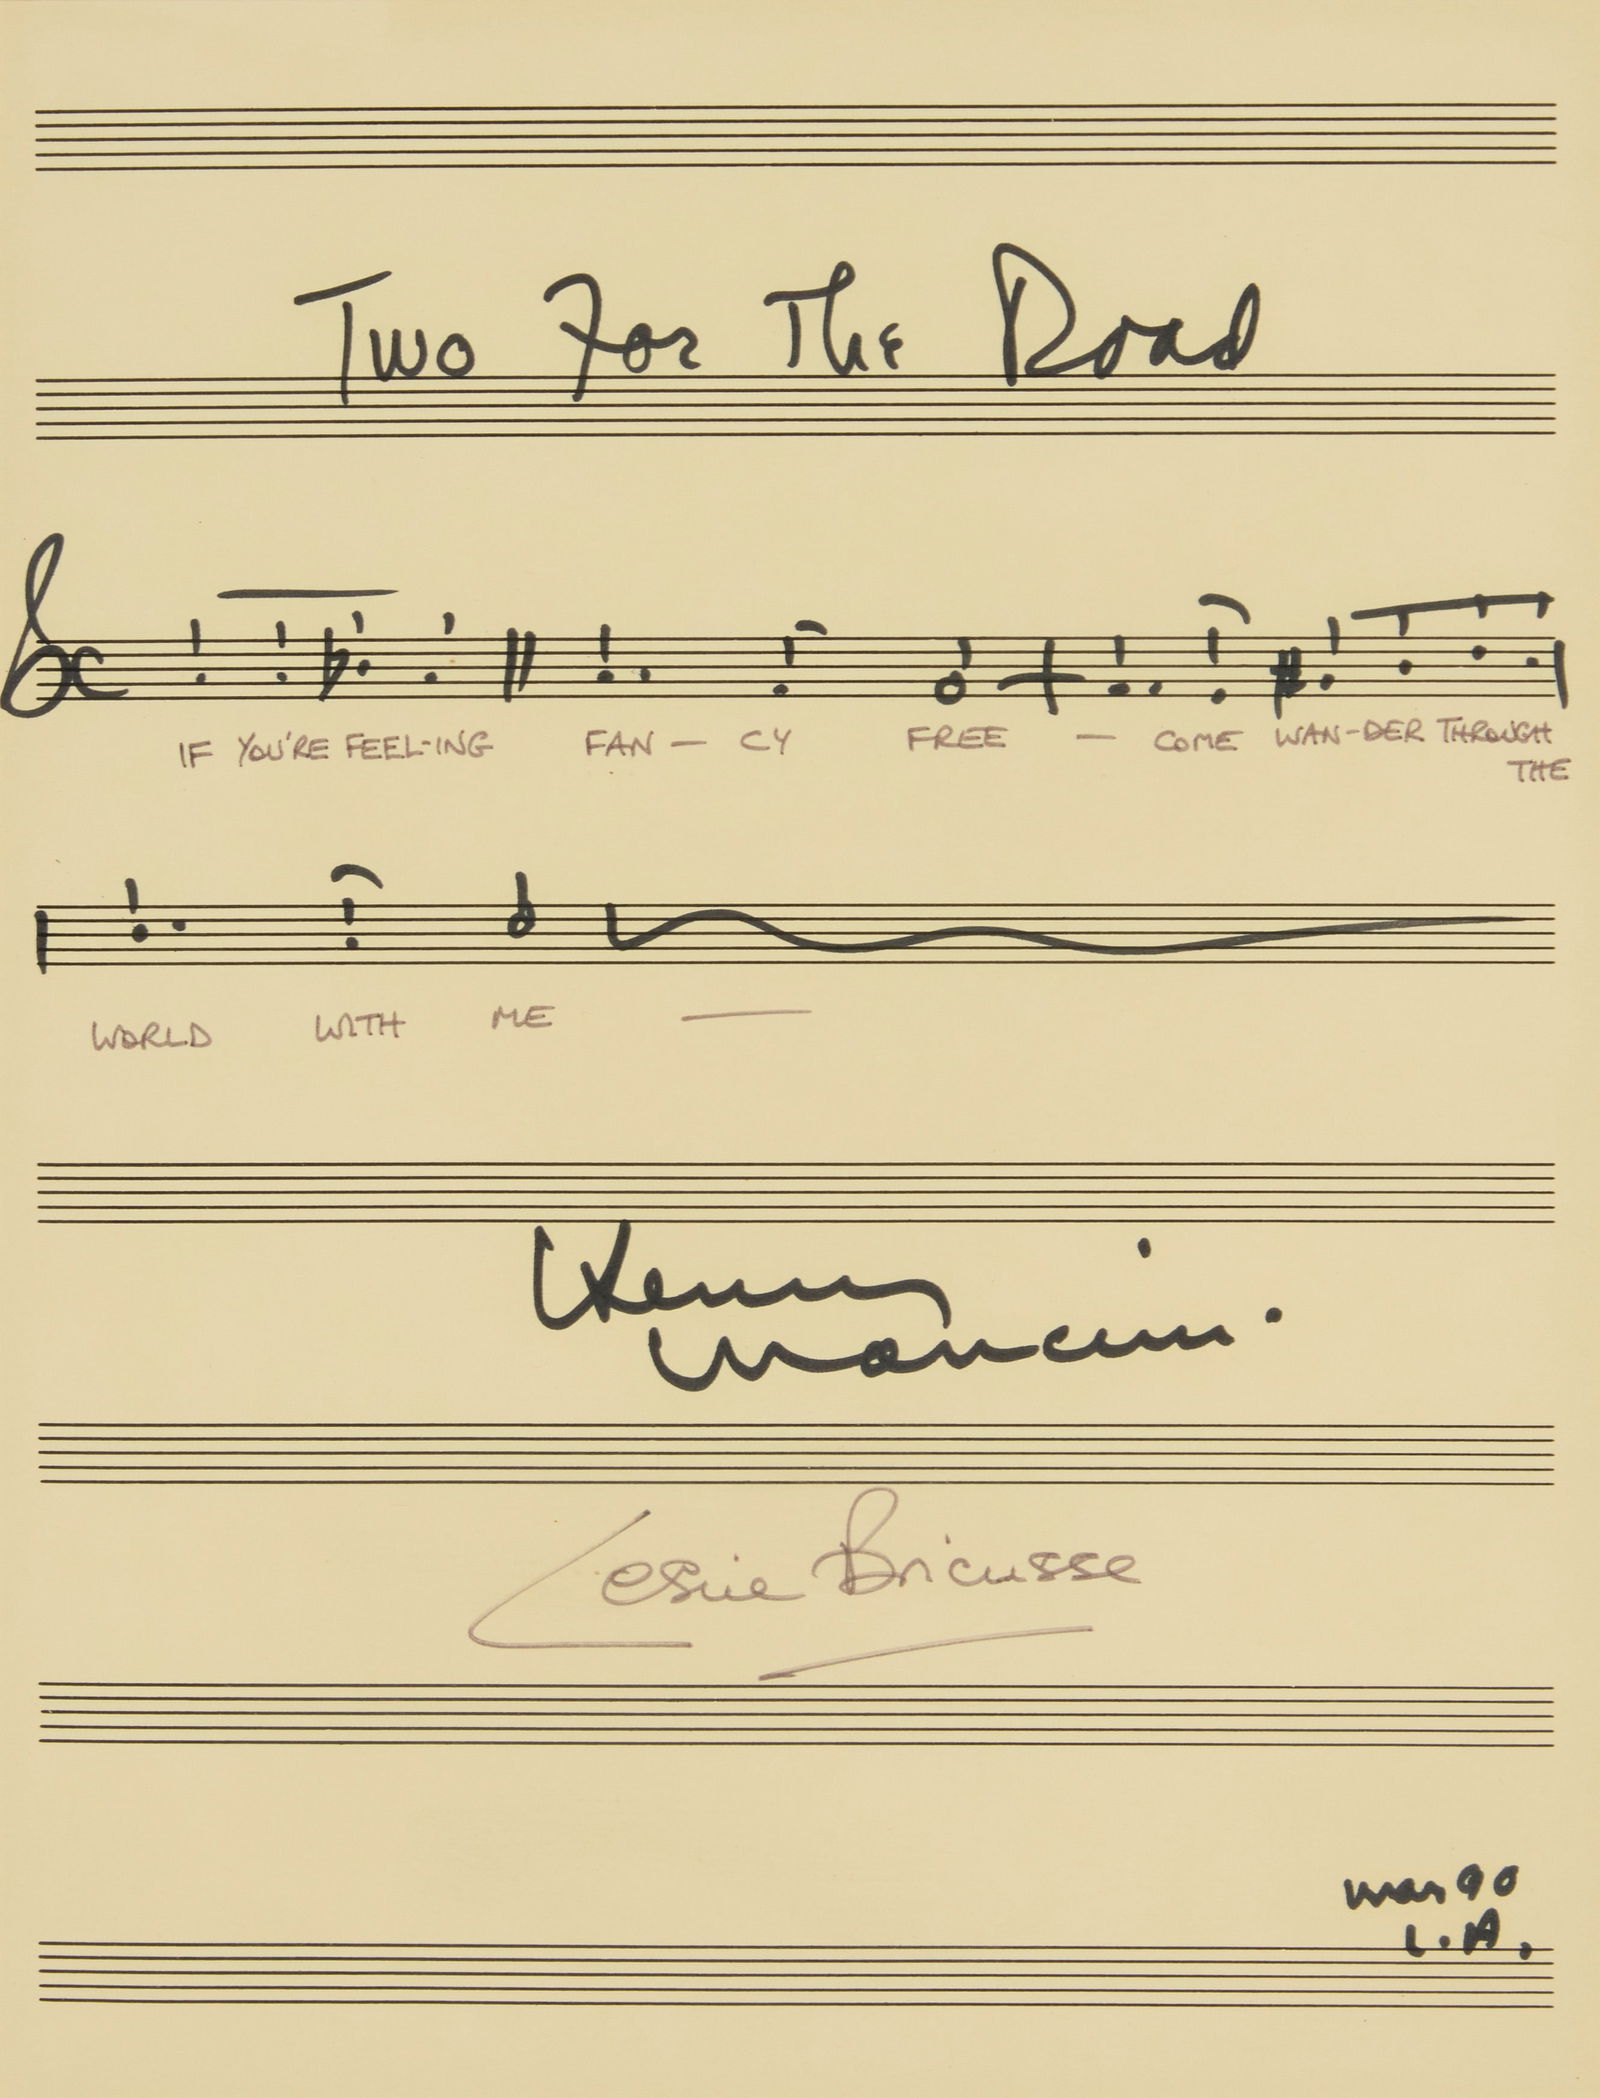 Two For The Road
IF YOU'RE FEEL-ING FAN — CY FREE — COME WAN-DER THROUGH
THE
WORLD WITH ME —
Henry
Mancini
Leslie Bricusse
mar 90
L.A.